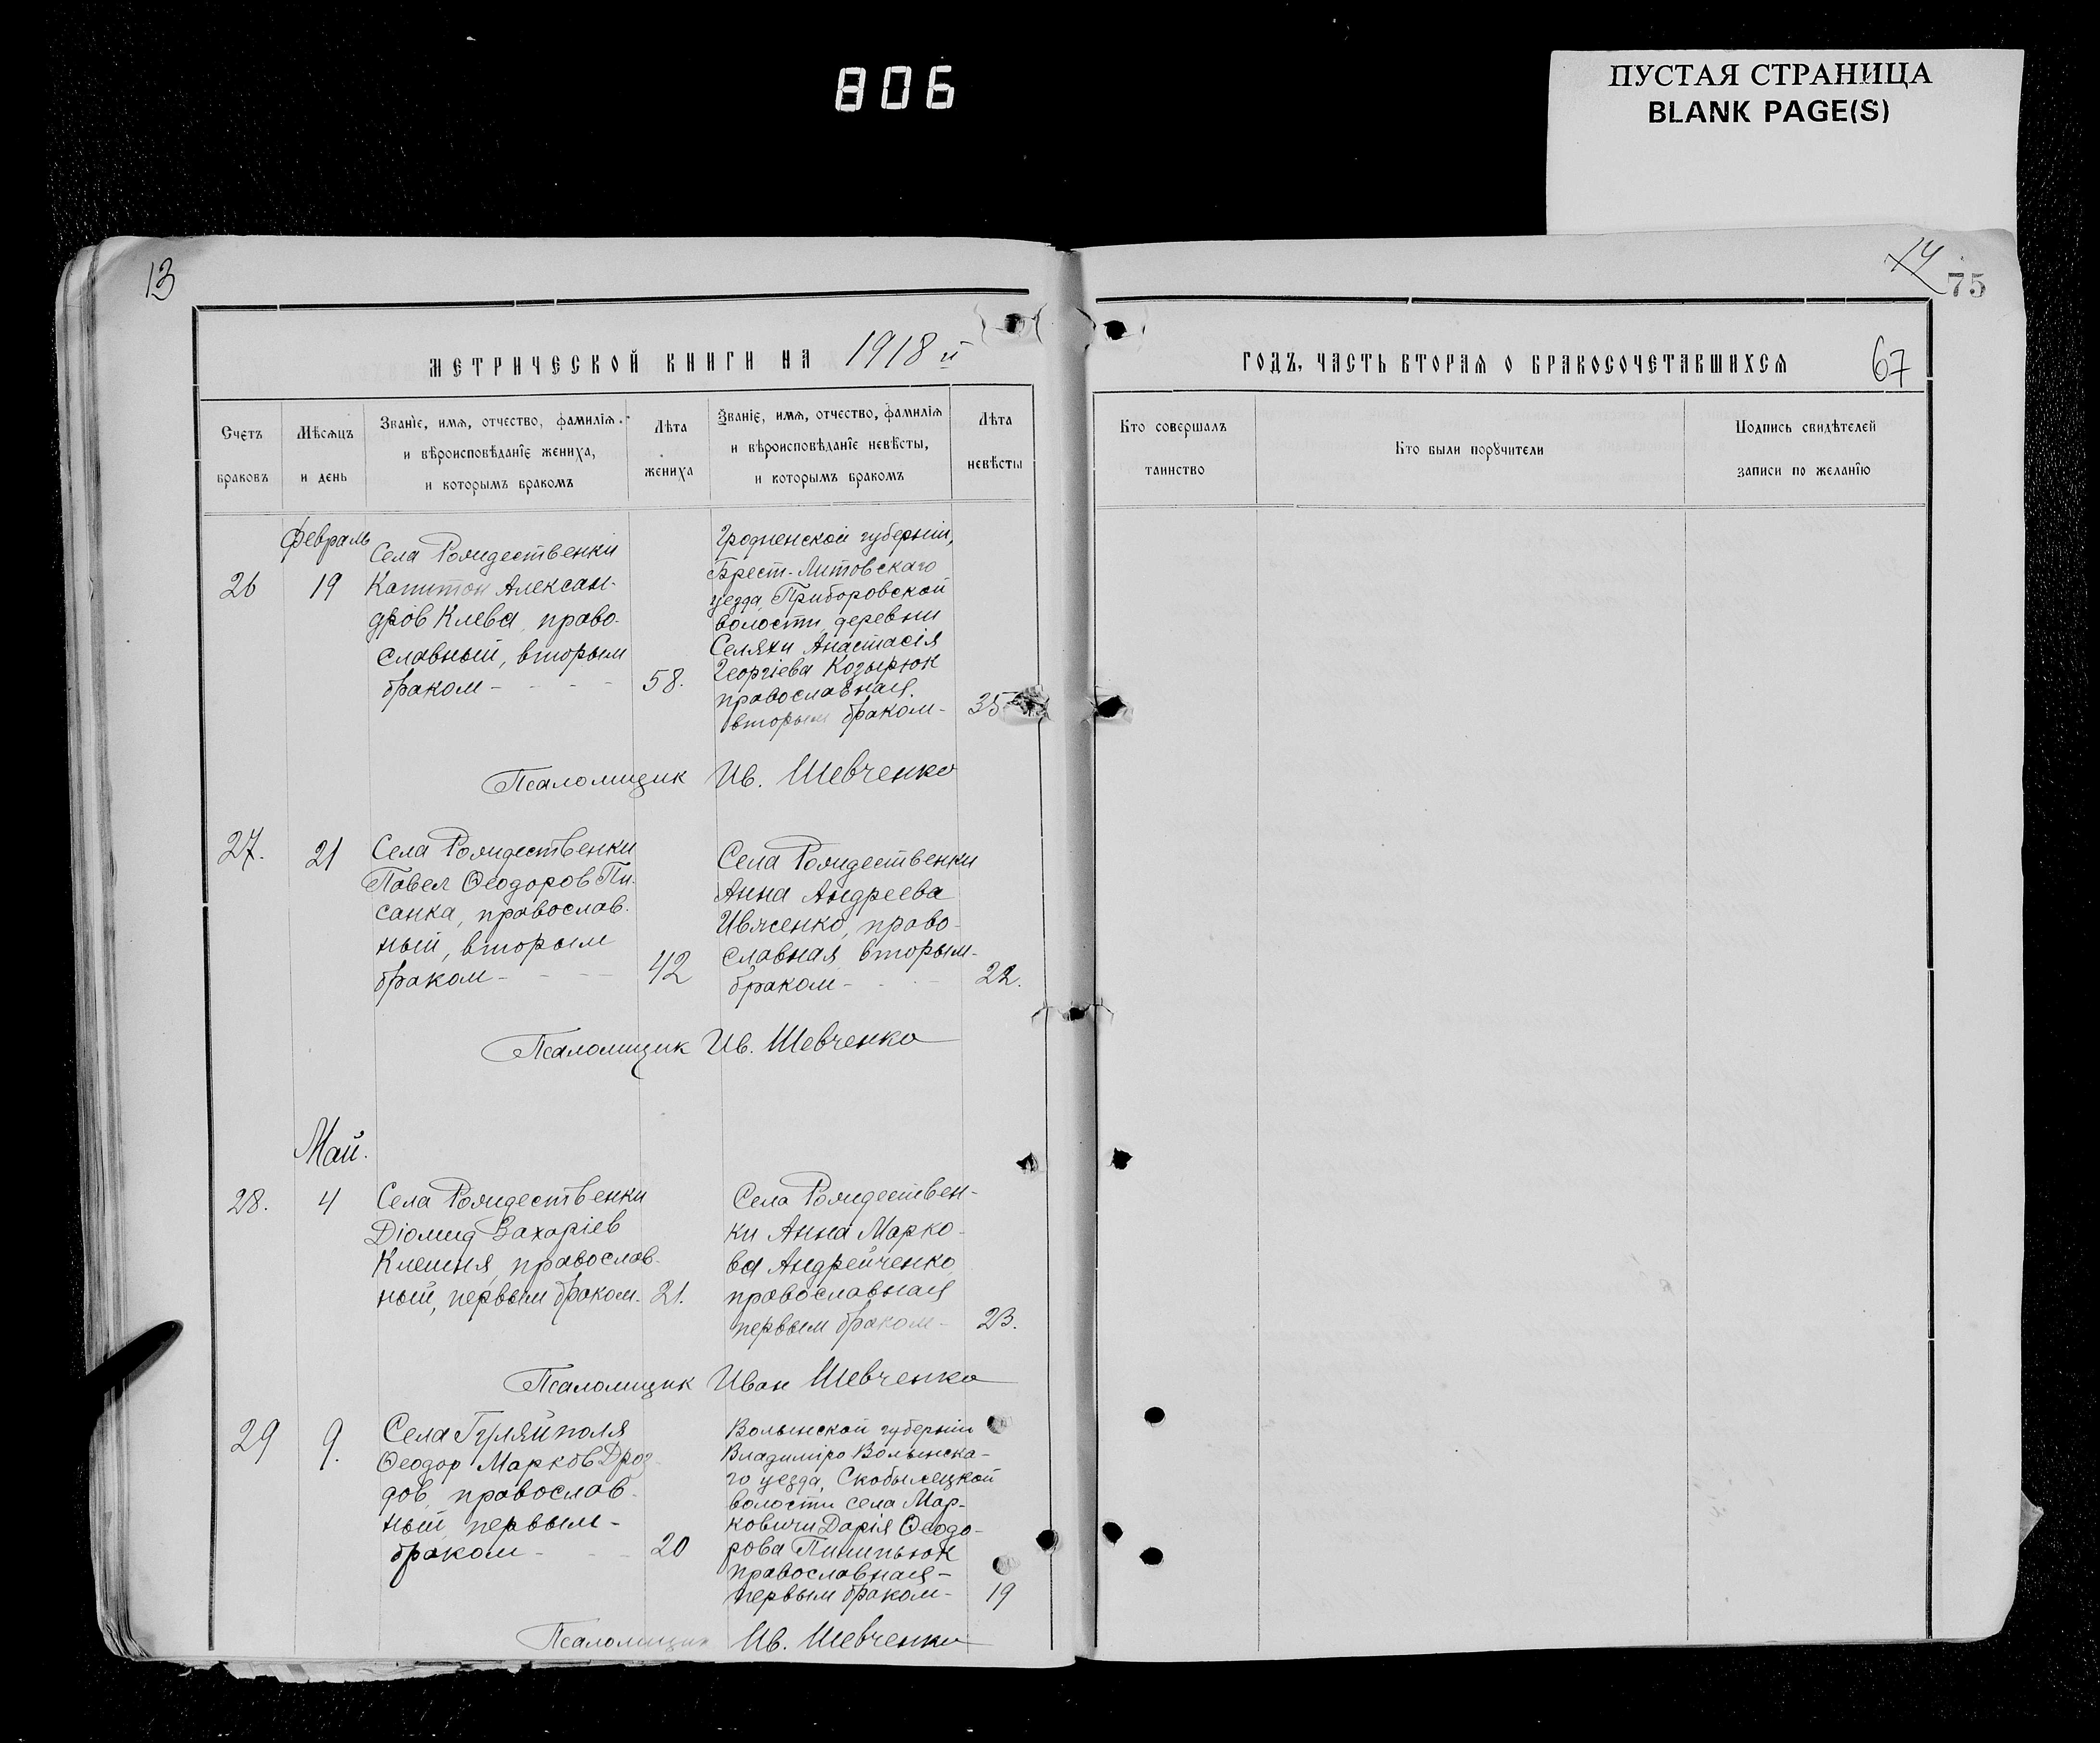 806
ПУСТАЯ СТРАНИЦА
BLANK PAGE(S)
13
14
75
МЕТРИЧЕСКОЙ КНИГИ НА 1918 й
ГОДЪ, ЧАСТЬ ВТОРАЯ О БРАКОСОЧЕТАВШИХСЯ
67
Счетъ браковъ
Мѣсяцъ и день
Званїе, имя, отчество, фамилїя и вѣроисповѣданїе жениха, и которымъ бракомъ
Лѣта жениха
Званїе, имя, отчество, фамилїя и вѣроисповѣданїе невѣсты, и которымъ бракомъ
Лѣта невѣсты
Кто совершалъ таинство
Кто были порꙋчители
Подпись свидѣтелей записи по желанїю
Февраль
26
19
Села Рождественки
Капитон Алексан-
дров Клева, право-
славный, вторым
браком -
58.
Гродненской губернiи,
Брест-Литовскаго
уезда, Приборовской
волости, деревни
Селяхи Анастасiя
Георгiева Козырюк
православная,
вторым браком -
35
Псаломщик Ив. Шевченко
27.
21
Села Рождественки
Павел Ѳеодоров Пи-
санка, православ-
ный, вторым
браком -
42
Села Рождественки
Анна Андреева
Ивженко, право-
славная, вторым-
браком -
22.
Псаломщик Ив. Шевченко
Май.
28.
4
Села Рождественки
Дiомид Захарiев
Клешня, православ-
ный, первым браком.
21.
Села Рождествен-
ки Анна Марко-
ва Андрейченко
православная
первым браком -
23.
Псаломщик Иван Шевченко
29
9.
Села Гуляйполя
Ѳеодор Марков Дроз-
дов, православ-
ный, первым -
браком -
20
Волынской губернiи
Владимiро Волынска-
го уезда, Скобылецкой
волости села Мар-
ковичи Дарiя Ѳеодо-
рова Пилипьюк
православная -
первым браком -
19
Псаломщик Ив. Шевченко